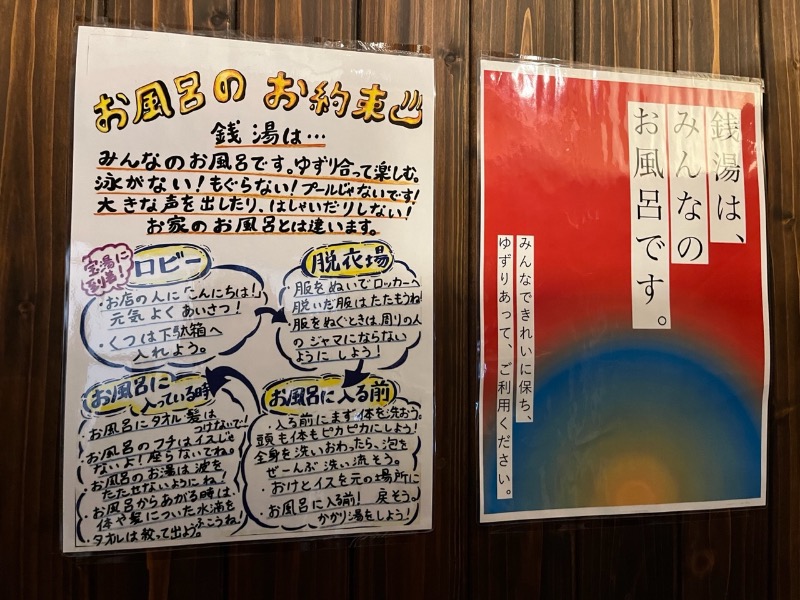 お風呂のお約束♨
銭湯は…
みんなのお風呂です。ゆずり合って楽しむ。
泳がない！もぐらない！プールじゃないです！
大きな声を出したり、はしゃいだりしない！
お家のお風呂とは違います。
宝湯に
到着！
ロビー
・お店の人に「こんにちは！」
元気よくあいさつ！
・くつは下駄箱へ
入れよう。
脱衣場
・服をぬいでロッカーへ
脱いだ服はたたもうね！
・服をぬぐときは周りの人
のジャマにならない
ようにしよう！
お風呂に入る前
・入る前にまず体を洗おう。
頭も体もピカピカにしよう！
全身を洗いおわったら、泡を
ぜーんぶ洗い流そう。
・おけとイスを元の場所に
戻そう。
・お風呂に入る前！
かかり湯をしよう！
お風呂に
入っている時
・お風呂にタオル・髪は
つけないで！
・お風呂のフチはイスじゃ
ないよ！座らないでね。
・お風呂のお湯は波を
たたせないようにね！
・お風呂からあがる時は、
体や髪についた水滴を
ふこうね！
・タオルは絞って出よう。
銭湯は、
みんなの
お風呂です。
みんなできれいに保ち、
ゆずりあって、ご利用ください。